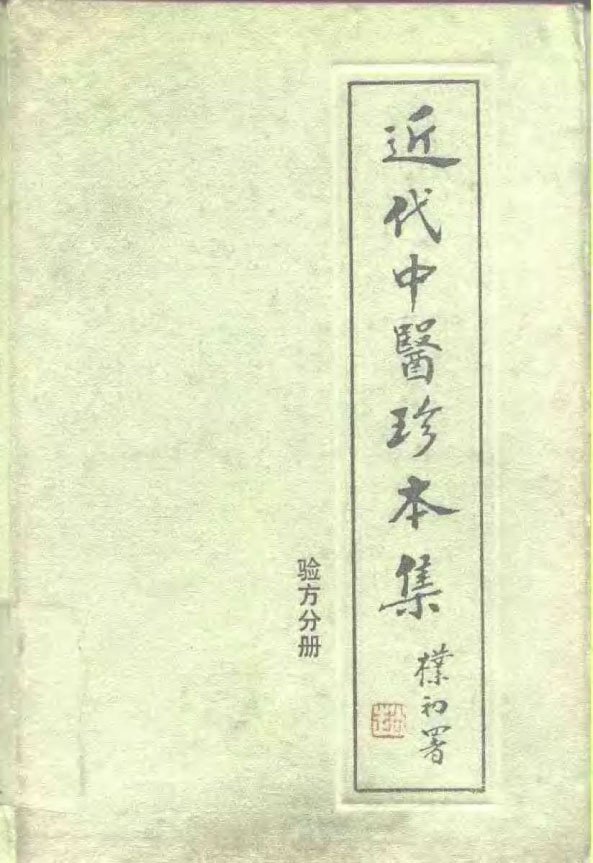 近代中醫珍本集
樸初署
验方分册